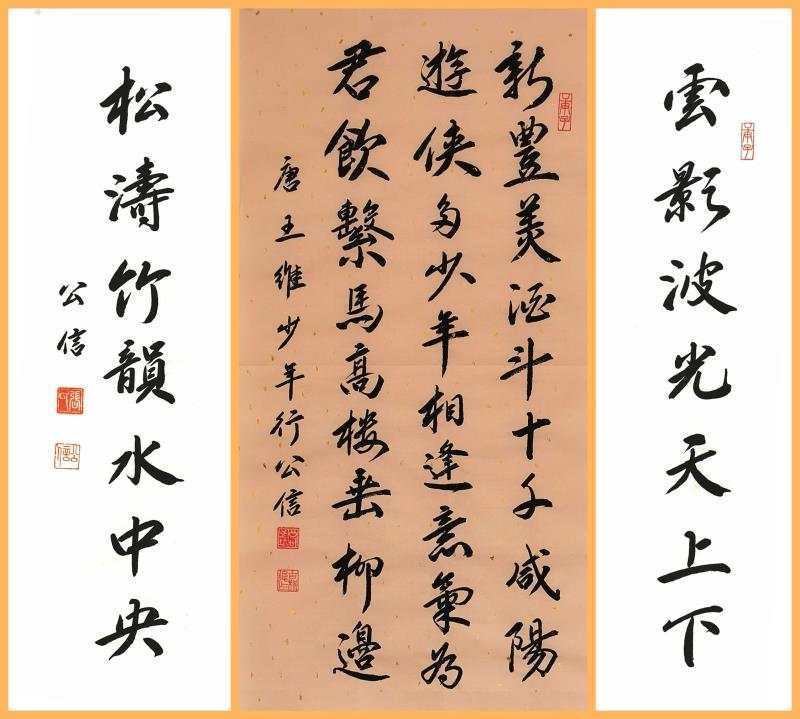 雲影波光天上下
庚子
新豐美酒斗十千咸陽
遊俠多少年相逢意氣為
君飲繫馬高樓垂柳邊
唐王維少年行公信
庚子
松濤竹韻水中央
公信